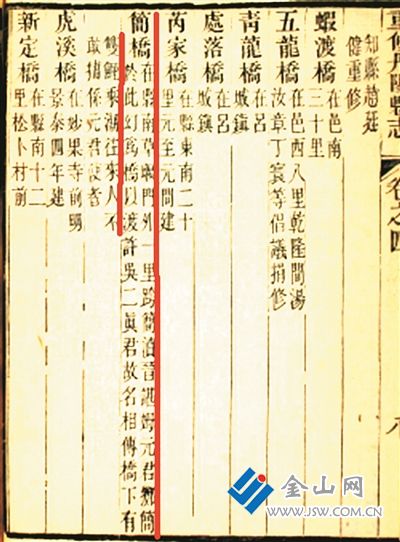 重修丹陽縣志
卷之四
八
知縣趙廷
健重修
蝦渡橋 在邑南
三十里
五龍橋 在邑西八里乾隆間湯
汝章丁寰等倡議捐修
青龍橋 在呂
城鎮
處落橋 在呂
城鎮
芮家橋 在縣東南二十
里元至元間建
簡橋 在縣南草堰門外一里跨簡瀆昔諶姆元君擲簡
於此幻為橋以渡許吳二眞君故名相傳橋下有
雙鯉乘湖往來人不
敢捕係元君從者
虎溪橋 在妙果寺前明
景泰四年建
新定橋 在縣南十二
里松卜村前
金山网
WWW.JSW.COM.CN